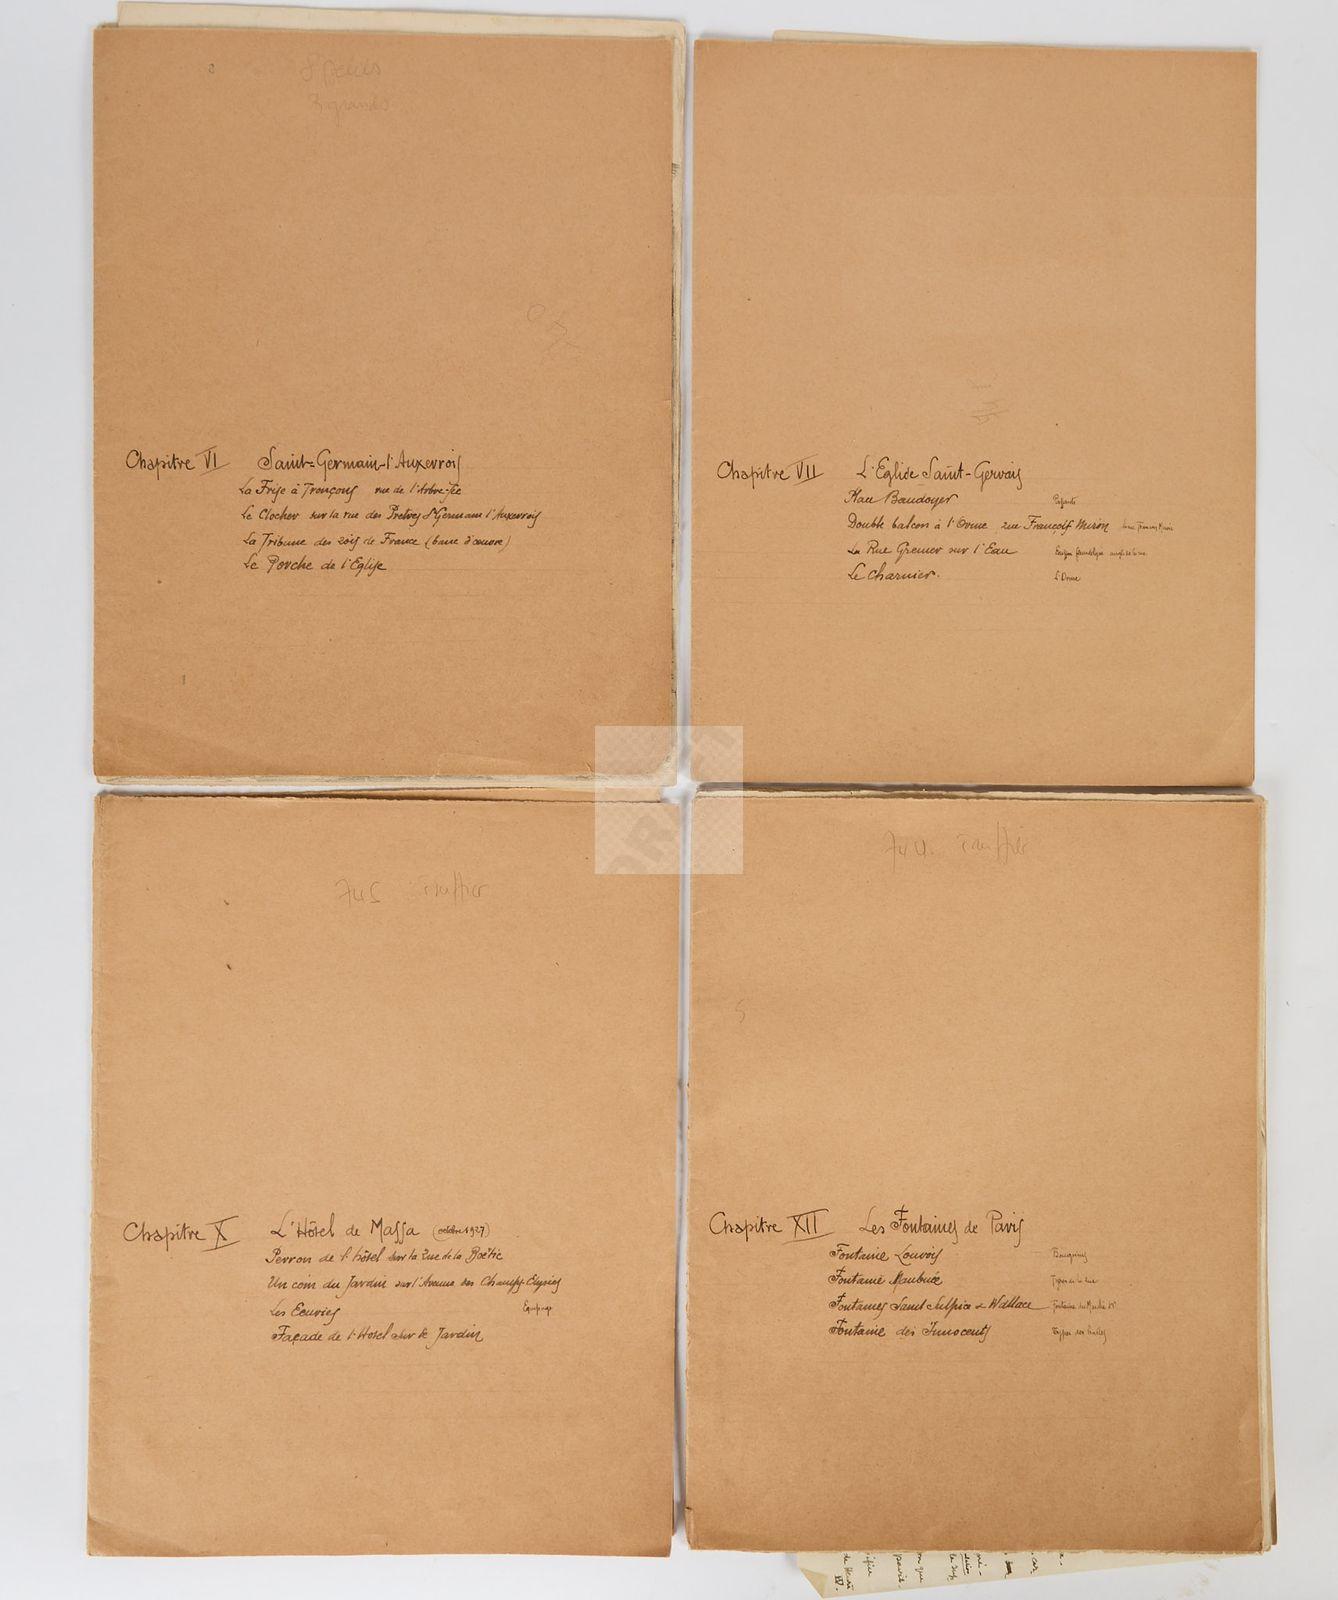 8 petits
3 grands
Chapitre VI Saint-Germain-l'Auxerrois
La Frise à Tronçons rue de l'Arbre-Sec
Le Clocher sur la rue des Pretres St Germain l'Auxerrois
La Tribune des rois de France (banc d'œuvre)
Le Porche de l'Eglise
Chapitre VII L'Eglise Saint-Gervais
Place Baudoyer
Double balcon à l'Orme rue François Miron
La Rue Grenier sur l'Eau
Le Charnier.
L'Orme
Chapitre X L'Hôtel de Massa (octobre 1927)
Perron de l'hôtel sur la Rue de la Boëtie
Un coin du Jardin sur l'Avenue des Champs-Elysées
Les Ecuries Equipage
Façade de l'Hotel sur le Jardin
Chapitre XII Les Fontaines de Paris
Fontaine Louvois Bouquinis
Fontaine Maubuée Types de la rue
Fontaines Saint Sulpice & Wallace Fontaine du Marché St
Fontaine des Innocents Types des Halles